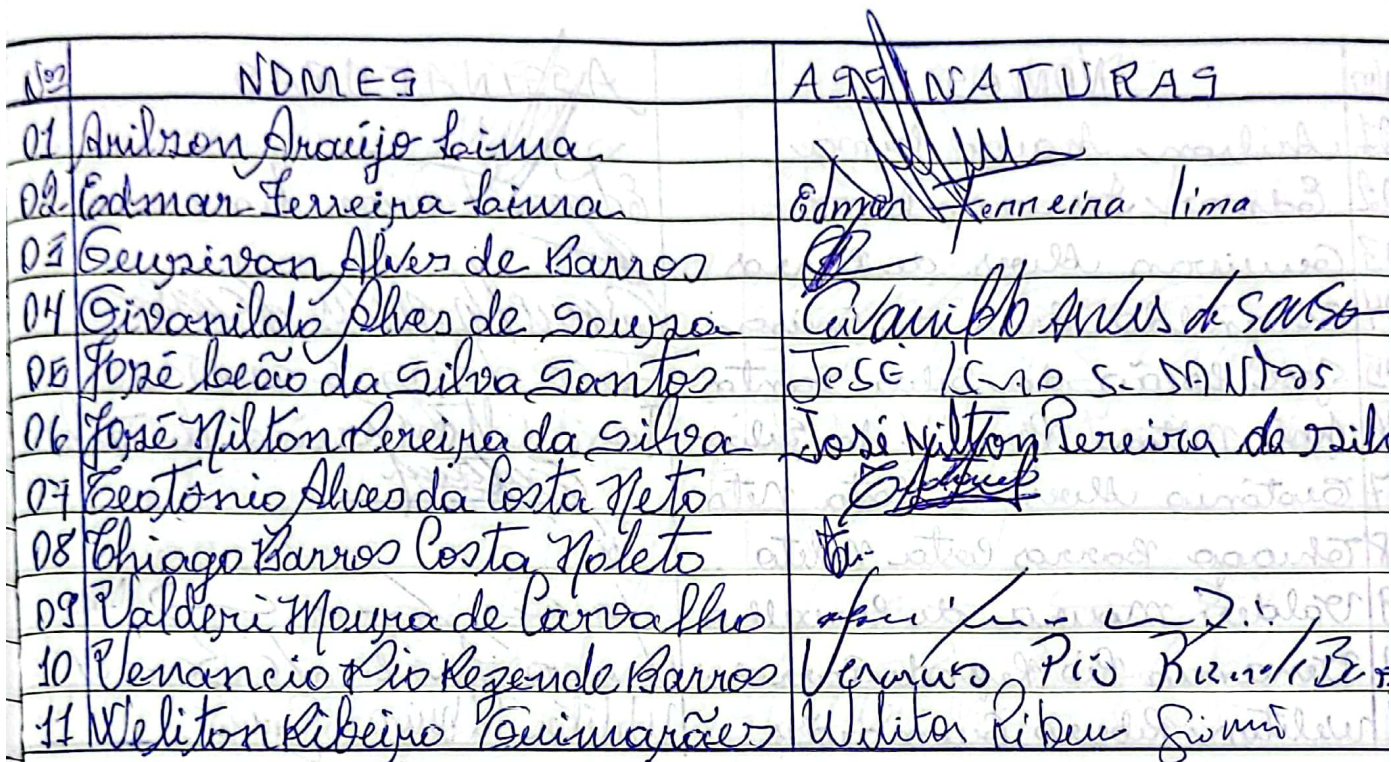 Nºs NOMES ASSINATURAS
01 Arilson Araújo Lima
02 Edmar Ferreira Lima Edmar Ferreira lima
03 Geuzivan Alves de Barros
04 Givanildo Alves de Souza Givanildo Alves de Souza
05 José Leão da Silva Santos José S. SANTOS
06 José Nilton Pereira da Silva José Nilton Pereira da Silv
07 Teotônio Alves da Costa Neto
08 Thiago Barros Costa Noleto
09 Valderi Moura de Carvalho
10 Venancio Pio Rezende Barros Venancio Pio
11 Weliton Ribeiro Guimarães Weliton Ribeiro